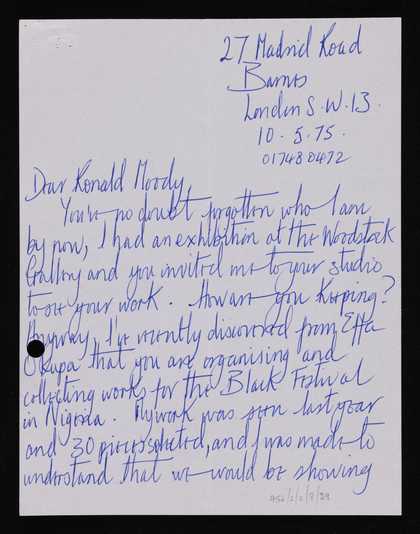 27 Madrid Road
Barnes
London S.W.13.
10.5.75.
01 748 0472
Dear Ronald Moody,
You've no doubt forgotten who I am
by now, I had an exhibition at the Woodstock
Gallery and you invited me to your studio
to see your work. How are you keeping?
Anyway, I've recently discovered from
that you are organising and
collecting works for the Black Festival
in Nigeria. My work was seen last year
and 30 pieces selected, and I was made to
understand that we would be showing